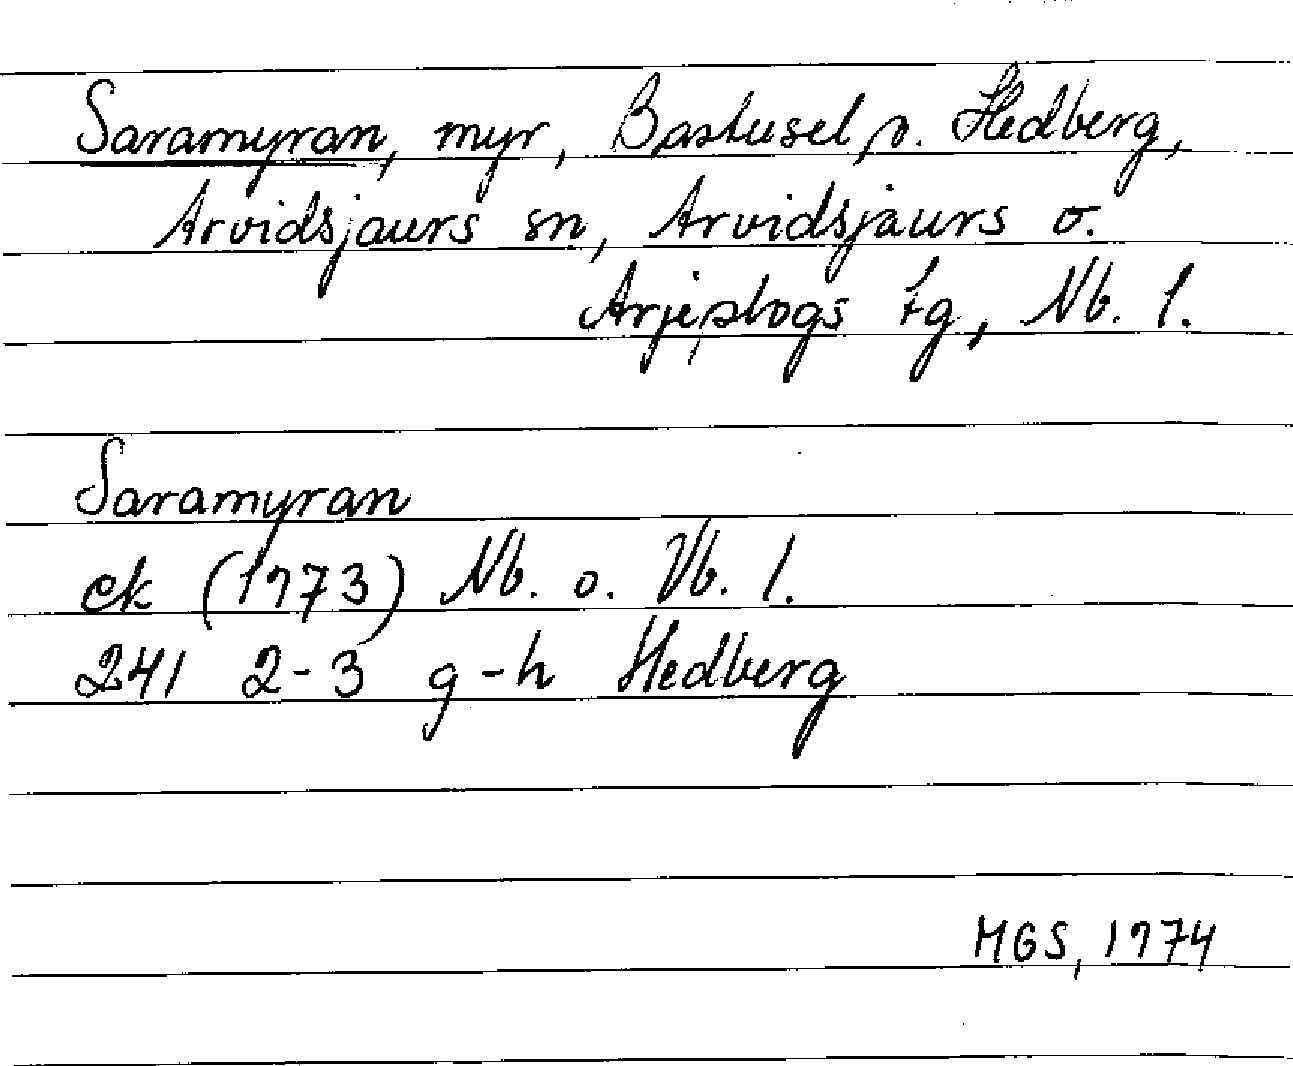 Saramyran, myr, Bastusel o. Hedberg,
Arvidsjaurs sn, Arvidsjaurs o.
Arjeplogs tg, Nb. l.
Saramyran
ek (1973) Nb. o. Vb. l.
241 2-3 g-h Hedberg
MGS, 1974